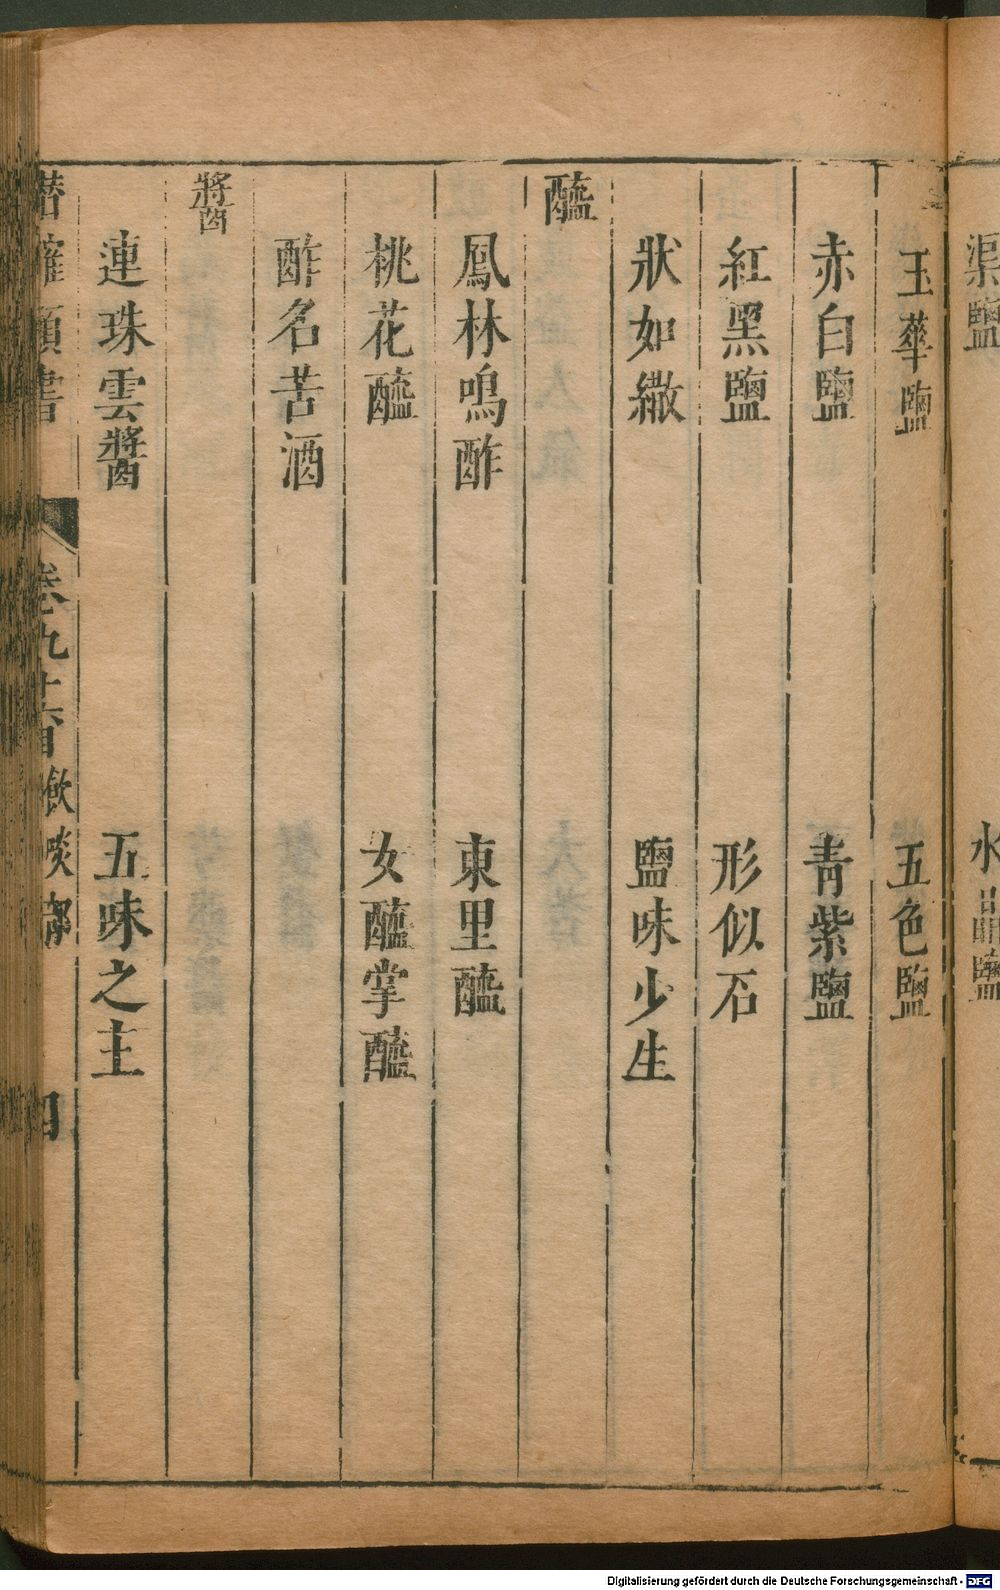 渠鹽　水晶鹽
玉華鹽　五色鹽
赤白鹽　青紫鹽
紅黑鹽　形似石
狀如繖　鹽味少生
醯
鳳林鳴酢　東里醯
桃花醯　女醯掌醯
酢名苦酒
醬
連珠雲醬　五味之主
潛確類書　卷九十六　飲啖部　四
Digitalisierung gefördert durch die Deutsche Forschungsgemeinschaft - DFG